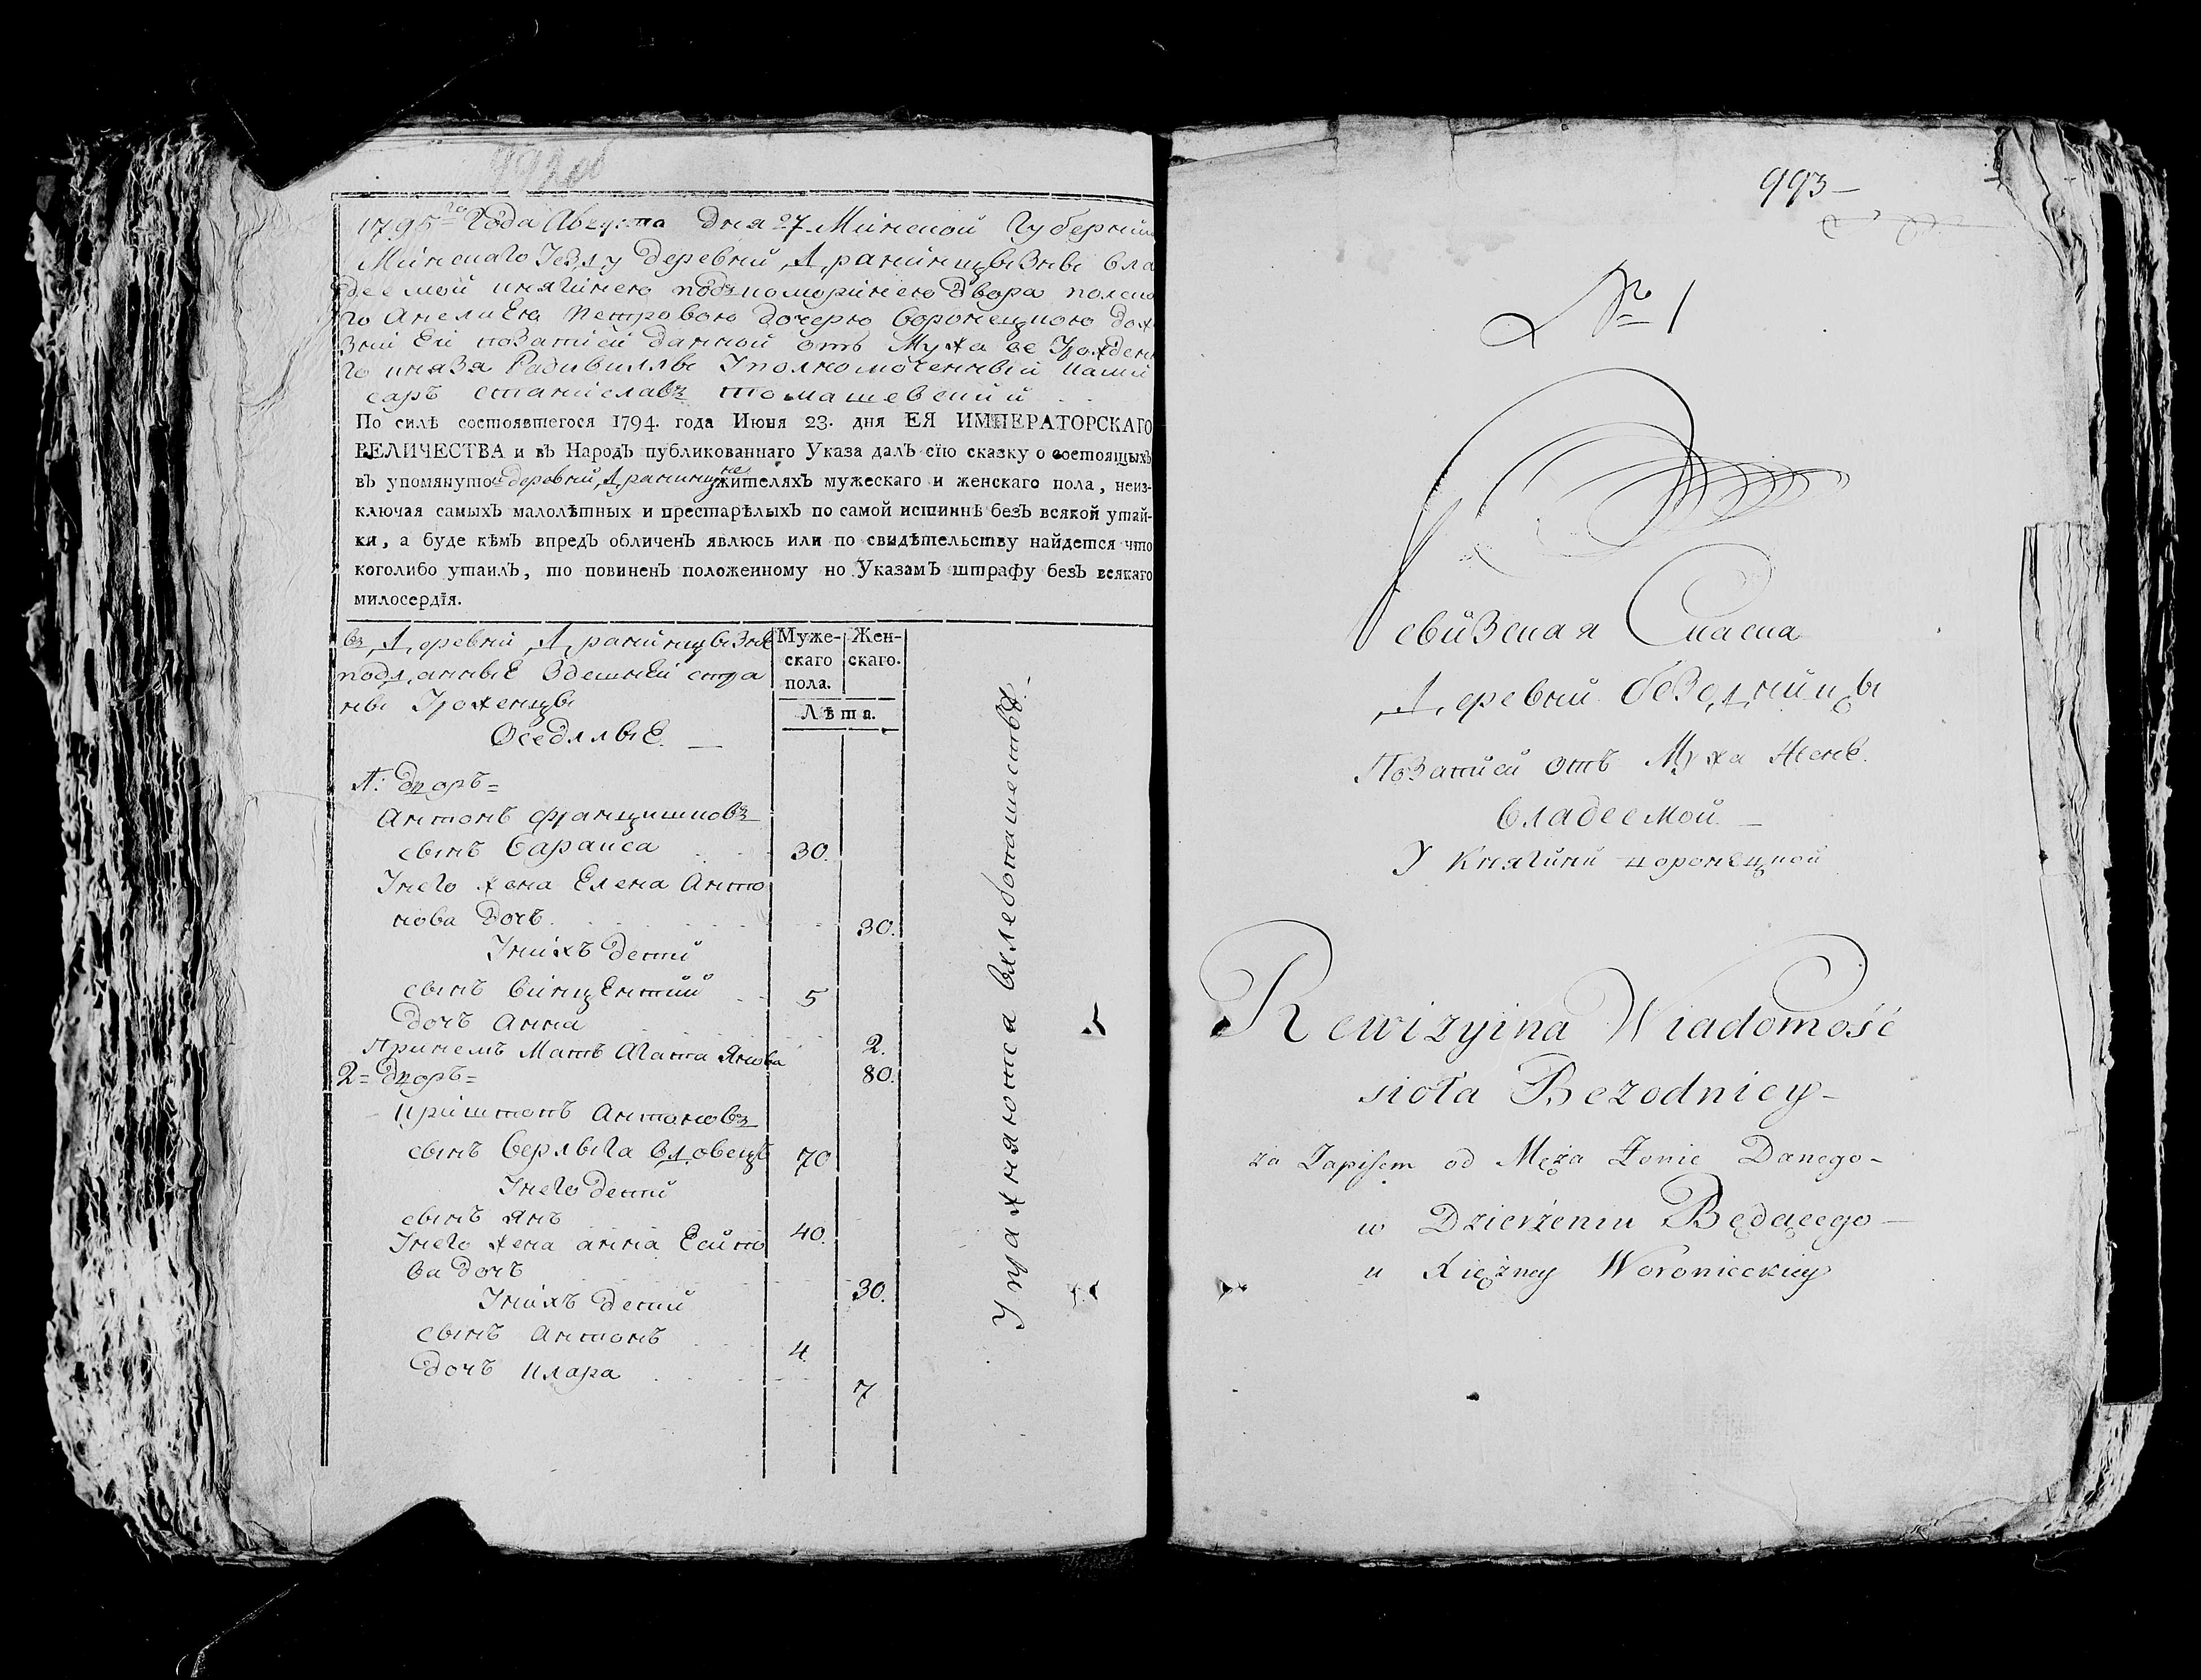 992 об
1795 го Года Августа Дня 27 Минской Губернии
Минскаго Уезду деревни Дранницызны вла
деемой
го Анели Ея Петровою дочерю Воронецкою
Ей позаписи данной отъ Мужа ее
го князя Радивиллы Уполномоченный Коми
саръ Станиславъ Томашевский
По силѣ состоявшегося 1794. года Июня 23. дня ЕЯ ИМПЕРАТОРСКАГО
ВЕЛИЧЕСТВА и въ НародЪ публикованнаго Указа далЪ сїю сказку о состоящыхЪ
въ упомянутой деревни жителяхЪ мужескаго и женскаго пола, неиз-
ключая самыхЪ малолѣтных и престарѣлыхЪ по самой истиннѣ безЪ всякой утай-
ки, а буде кѣмЪ впредЪ обличенЪ явлюсь или по свидѣтельству найдется что
коголибо утаилЪ, то повиненЪ положенному но УказамЪ штрафу безЪ всякаго
милосердїя.
въ Деревни
подданные Здешней стра
ны Уроженцы
Оседлые
Муже-
скаго
пола.
Жен-
скаго.
Лѣта.
1: Дворъ =
Антонъ Францишковъ
сынъ Барайса 30.
Унего жена Елена Анто
нова Дочъ 30.
Унихъ Дети
сынъ Винцентий 5
Дочъ Анна 2.
Принемъ Мать Агата Янова 80.
2 = Дворъ =
Криштопъ Антоновъ
сынъ Верлыга Вдовецъ 70
Унего Дети
сынъ Янъ 40.
Унего жена Анна
ва Дочъ 30.
Унихъ Дети
сынъ Антонъ 4
Дочъ Клара 7
Упражняются вхлебопашестве.
993
№ 1
Ревизская Скаска
Деревни Безодницы
Позаписи Отъ Мужа Жене
Владеемой
У Княгини Воронецкой
Rewizyina Wiadomość
sioła Bezodnicy
za Zapisem od Męża Żonie Danego
w Dzierżeniu Będącego
u Xiężney Woronieckiey